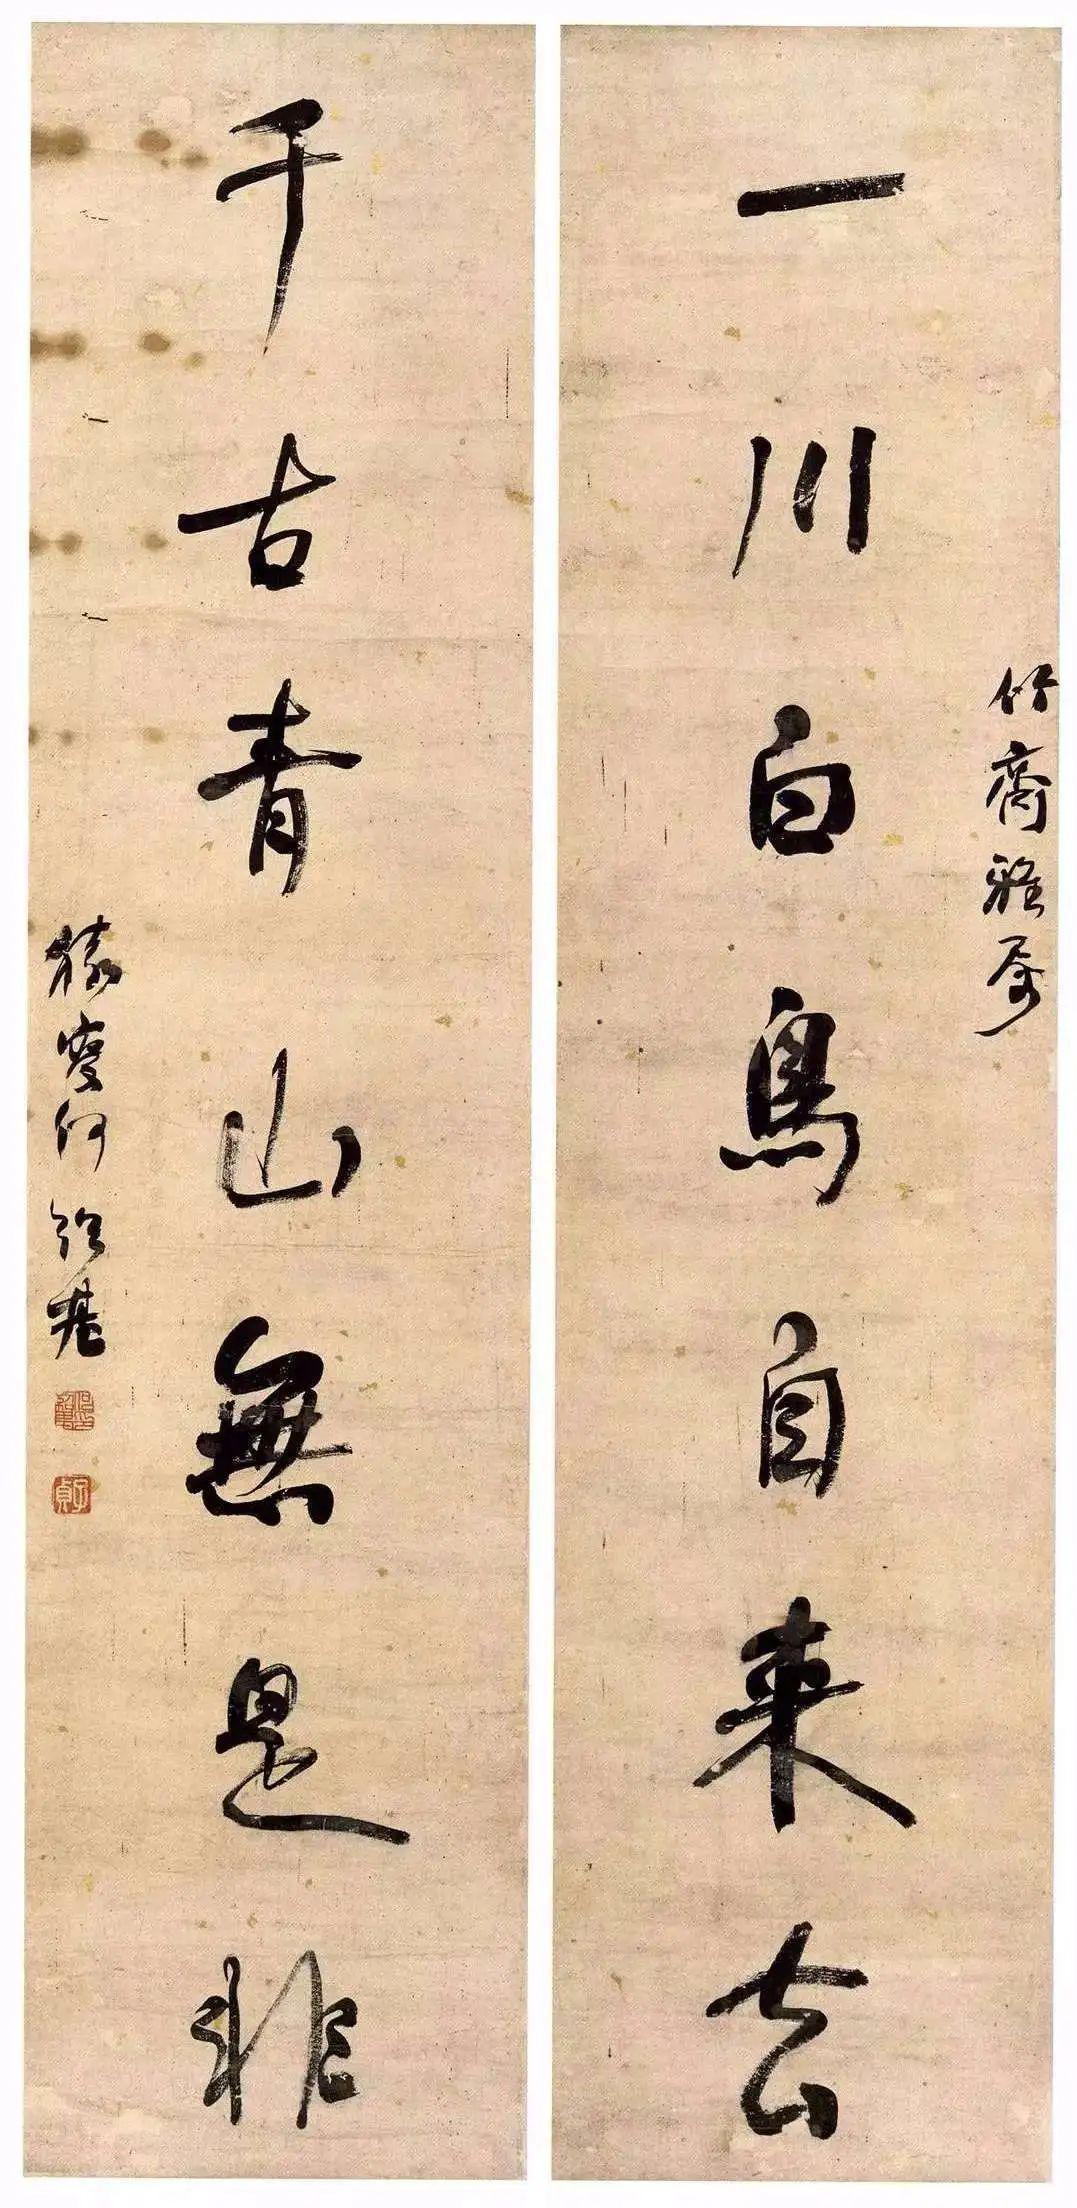 竹齋雅屬
一川白鳥自來去
千古青山無是非
猨叟何紹基
子貞